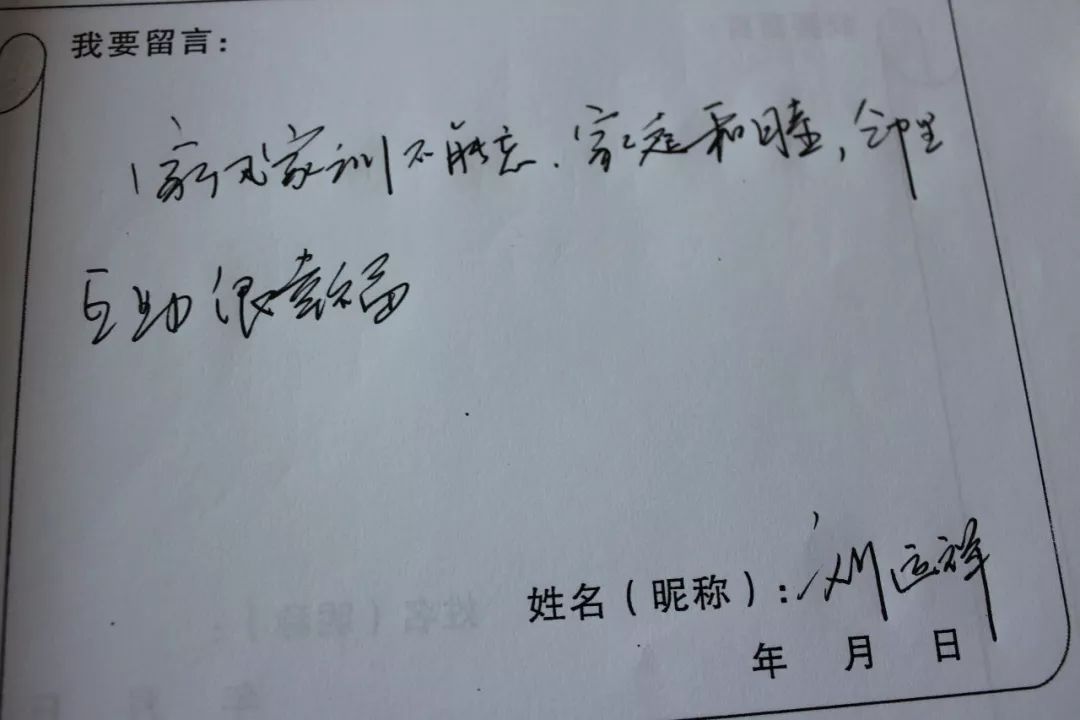 我要留言:
家风家训不能忘、家庭和睦,邻里
互助很幸福
姓名(昵称):刘运祥
年 月 日